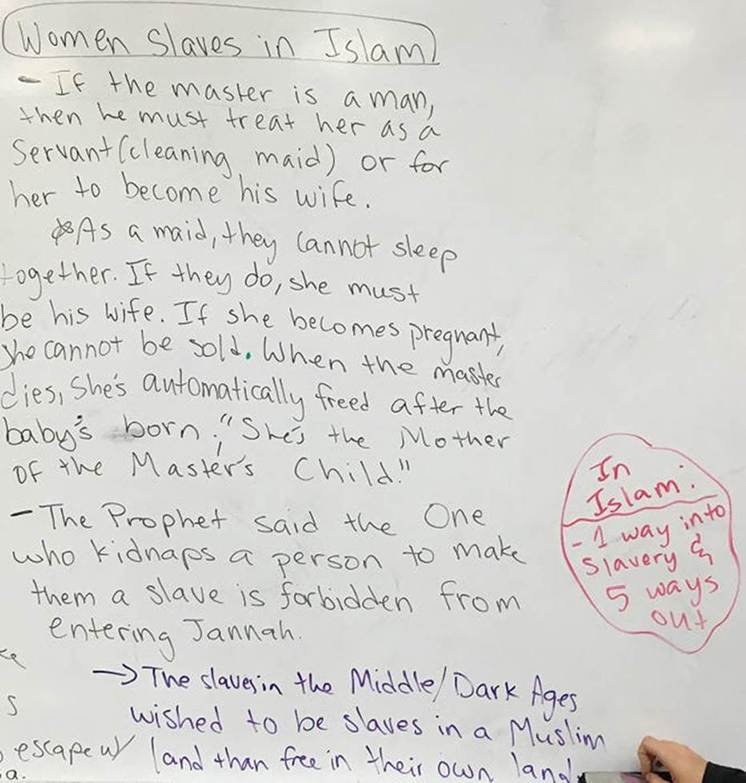 Women Slaves in Islam
- If the master is a man,
then he must treat her as a
Servant (cleaning maid) or for
her to become his wife.
As a maid, they cannot sleep
together. If they do, she must
be his wife. If she becomes pregnant,
she cannot be sold. When the master
dies, She's automatically freed after the
baby's born; "She's the Mother
of the Master's Child."
- The Prophet said the One
who kidnaps a person to make
them a slave is forbidden from
entering Jannah.
→ The slaves in the Middle/Dark Ages
wished to be slaves in a Muslim
land than free in their own land
s
escape w/
a.
In
Islam:
- 1 way into
slavery &
5 ways
out